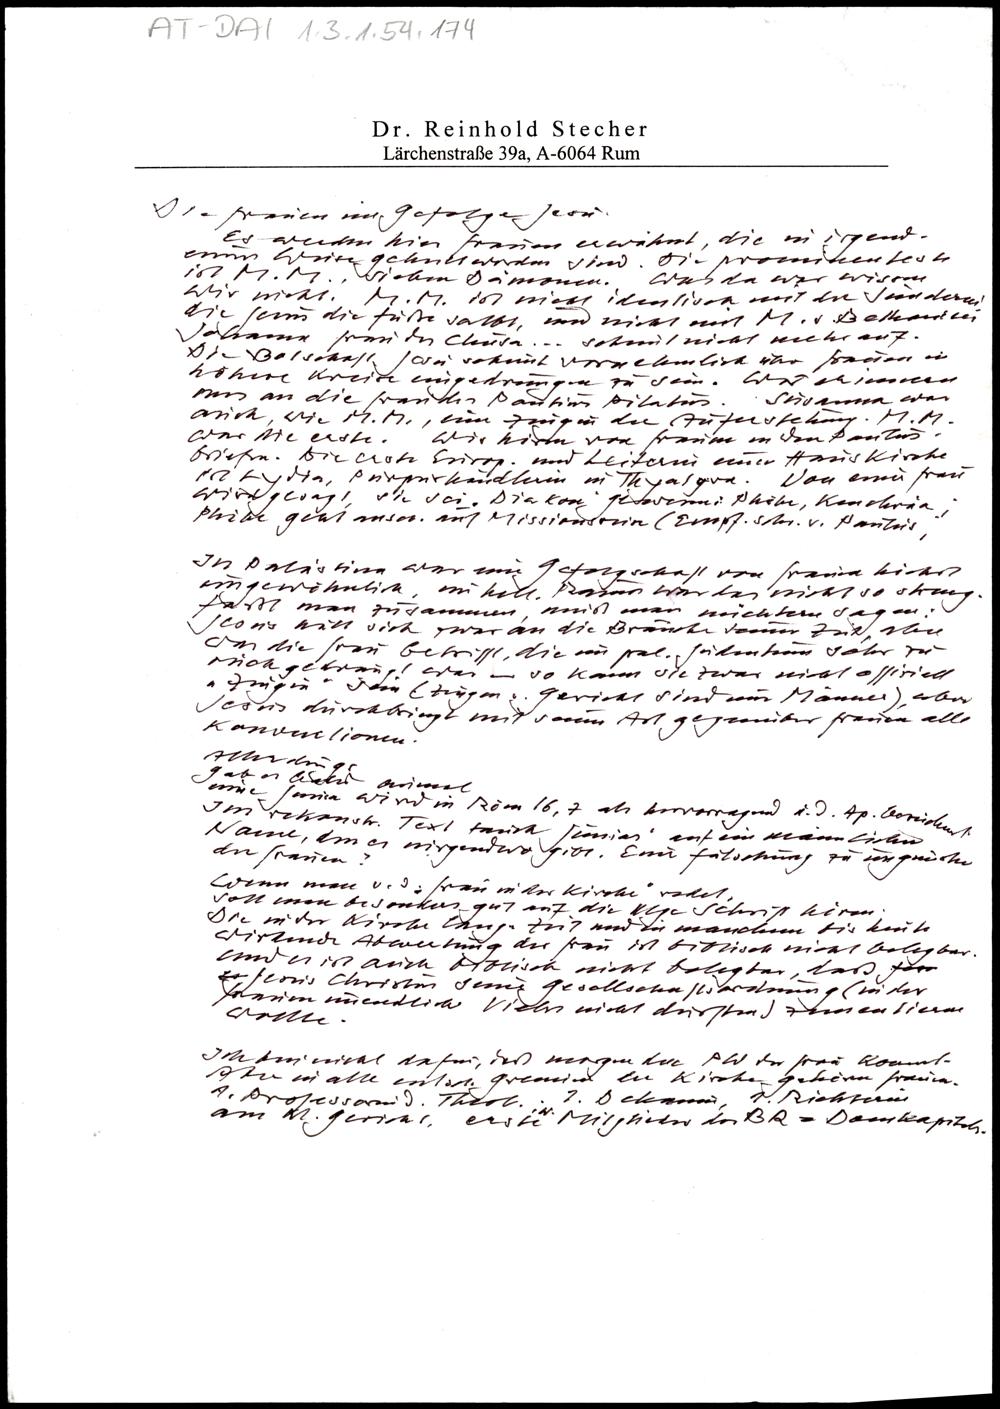 AT-DAI 1.3.1.54.174
Dr. Reinhold Stecher
Lärchenstraße 39a, A-6064 Rum
Die Frauen im Gefolge Jesu.
Es werden hier Frauen erwähnt, die in irgend-
einer Weise geheilt worden sind. Die prominenteste
ist M. M., sieben Dämonen. Was da war wissen
wir nicht. M. M. ist nicht identisch mit der Sünderin
die Jesus die Füße salbt, und nicht mit M. v Bethanien
Johanna Frau des Chusa ... scheint nicht mehr auf.
Die Botschaft Jesu scheint vornehmlich über Frauen in
höhere Kreise eingedrungen zu sein. Wir erinnern
uns an die Frau des Pontius Pilatus. Susanna war
auch, wie M. M., eine Zeugin der Auferstehung. M. M.
war die erste. Wir hören von Frauen in den Paulus-
briefen. Die erste Europ. und Leiterin einer Hauskirche
ist Lydia, Purpurhändlerin in Thyatyra. Von einer Frau
wird gesagt, sie sei „Diakon" gewesen: Phöbe, Kenchräa;
Phöbe geht auf Missionsreise (Empf. schr. v. Paulus,
In Palästina war eine Gefolgschaft von Frauen höchst
ungewöhnlich, im hell. Raum war das nicht so streng.
Faßt man zusammen, muß man nüchtern sagen:
Jesus hält sich zwar an die Bräuche seiner Zeit, aber
was die Frau betrifft, die im pal. Judentum sehr zu-
rückgedrängt war – so kann sie zwar nicht offiziell
„Zeugin" sein (Zeugen v. Gericht sind nur Männer), aber
Jesus durchbringt mit seiner Art gegenüber Frauen alle
Konventionen.
Allerdings
gab es einmal
eine Junia wird in Röm 16,7 als hervorragend u. d. Ap. bezeichnet.
Im rekonstr. Text taucht „Junias" auf ein männlicher
Name, den es nirgendwo gibt. Eine Fälschung zu ungunsten
der Frauen?
Wenn man v. d. „Frau in der Kirche" redet,
soll man besonders gut auf die Hlge Schrift hören.
Die in der Kirche lange Zeit und in manchem bis heute
wirkende Abwertung der Frau ist biblisch nicht belegbar.
Und es ist auch biblisch nicht belegbar, daß
Jesus Christus seine Gesellschaftsordnung (in der
Frauen unendlich Vieles nicht durften) zementieren
wollte.
Ich bin nicht dafür, daß morgen die PW der Frau kommt.
Aber in alle entsch. Gremien der Kirche gehören Frauen.
1. Professorin d. Theol. 1. Dekanin, 1. Richterin
am kl. Gericht, erste Mitglieder des BR = Domkapitels.